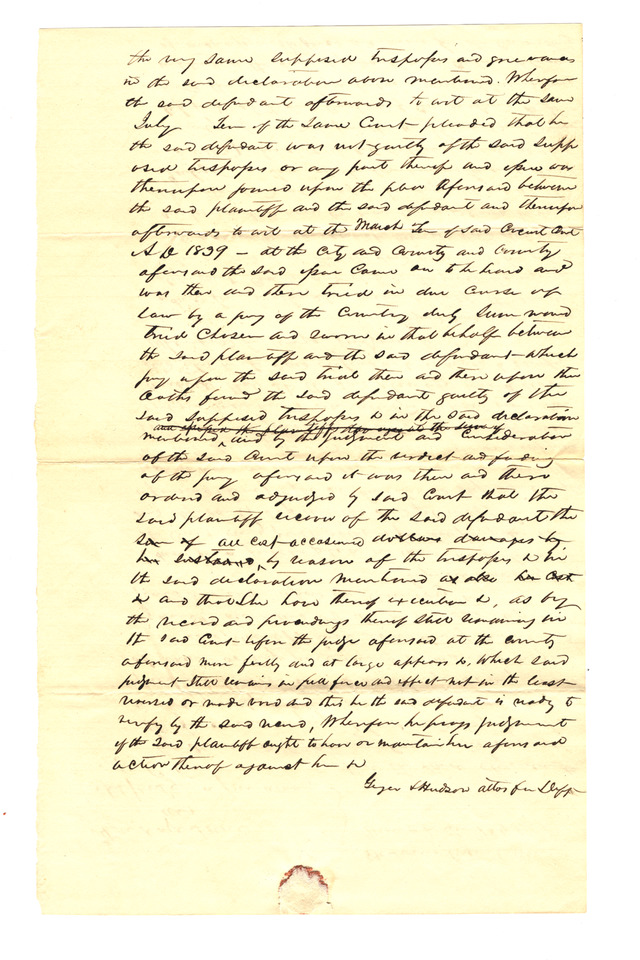 the very same supposed trespasses and grievances
in the said declaration above mentioned. Wherefore
the said defendant afterwards to wit at the same
July Term of the same Court pleaded that he
the said defendant was not guilty of the said supp
osed trespasses or any part thereof and issue was
thereupon joined upon the plea aforesaid between
the said plaintiff and the said defendant and thereupon
afterwards to wit at the March Term of said Circuit Court
A D 1839 – at the city and County and County
aforesaid the said issue came on to be heard and
was then and there tried in due course of
law by a jury of the Country duly
tried chosen and sworn in that behalf between
the said plaintiff and the said defendant – which
jury upon the said trial then and there upon their
Oaths found the said defendant guilty of the
said supposed trespasses &c in the said declaration
mentioned, and by the judgment and Consideration
of the said Court upon the verdict and finding
of the jury aforesaid it was then and there
ordered and adjudged by said Court that the
said plaintiff recover of the said defendant the
sum of all cost occasioned dollars damages by
her sustained, by reason of the trespasses &c in
the said declaration mentioned as also her Cost
&c and that she have thereof execution &c, as by
the record and proceedings thereof still remaining in
the said Court upon the judge aforesaid at the county
aforesaid more fully and at large appears &c, which said
judgment still remains in full force and effect not in the least
reversed or made void and this he the said defendant is ready to
verify by the said record, Wherefore he prays judgment
if the said plaintiff ought to have or maintain her aforesaid
action thereof against him &c
Geyer & Hudson attos for Deft